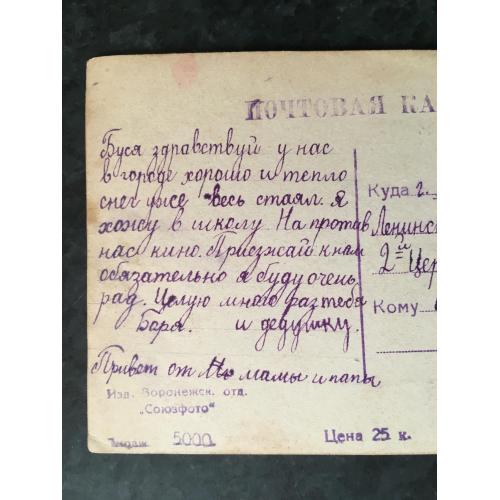 ПОЧТОВАЯ КА
Буся здравствуй у нас
в городе хорошо и тепло
снег уже весь стаял. Я
хожу в школу. На против
нас кино. Приезжай к нам
обязательно я буду очень
рад. Целую много раз тебя
Боря. и дедушку.
Привет от мамы и папы
Куда г.
Ленинск
2ой Цер
Кому
Изд. Воронежск. отд.
„Союзфото"
Тираж 5000
Цена 25 к.